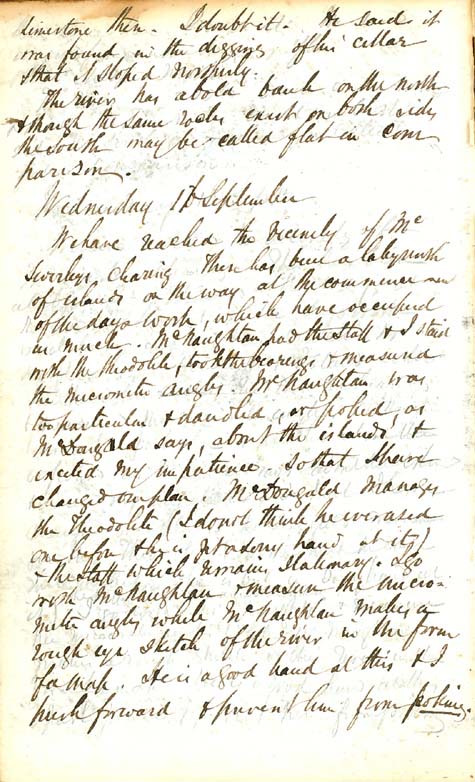 limestone then. I doubt it. He said it
was found in the digging of his cellar
& that it sloped
The river has a bold bank on the north
& though the same rocks exist on both sides
the south may be called flat in com
parison.
Wednesday 17th September
We have reached the vicinity of Mc
clearing. There has been a labyrinth
of islands on the way at the commence
of the days work, which have occupied
us much. McNaughtan had the staff & I staid
with the theodolite, took the bearings & measured
the micrometer angles. McNaughtan was
too particular & dawdled, or poked, as
McDougald says, about the islands &
excited my impatience. So that I have
changed our plan. McDougald manages
the Theodolite (I do not think he ever used
one before & he is not a sorry hand at it)
& the staff which remains stationary. I go
with McNaughtan & measure the micro-
meter angles while McNaughtan makes a
rough eye sketch of the river in the form
of a map. He is a good hand at this & I
push forward & prevent him from poking.